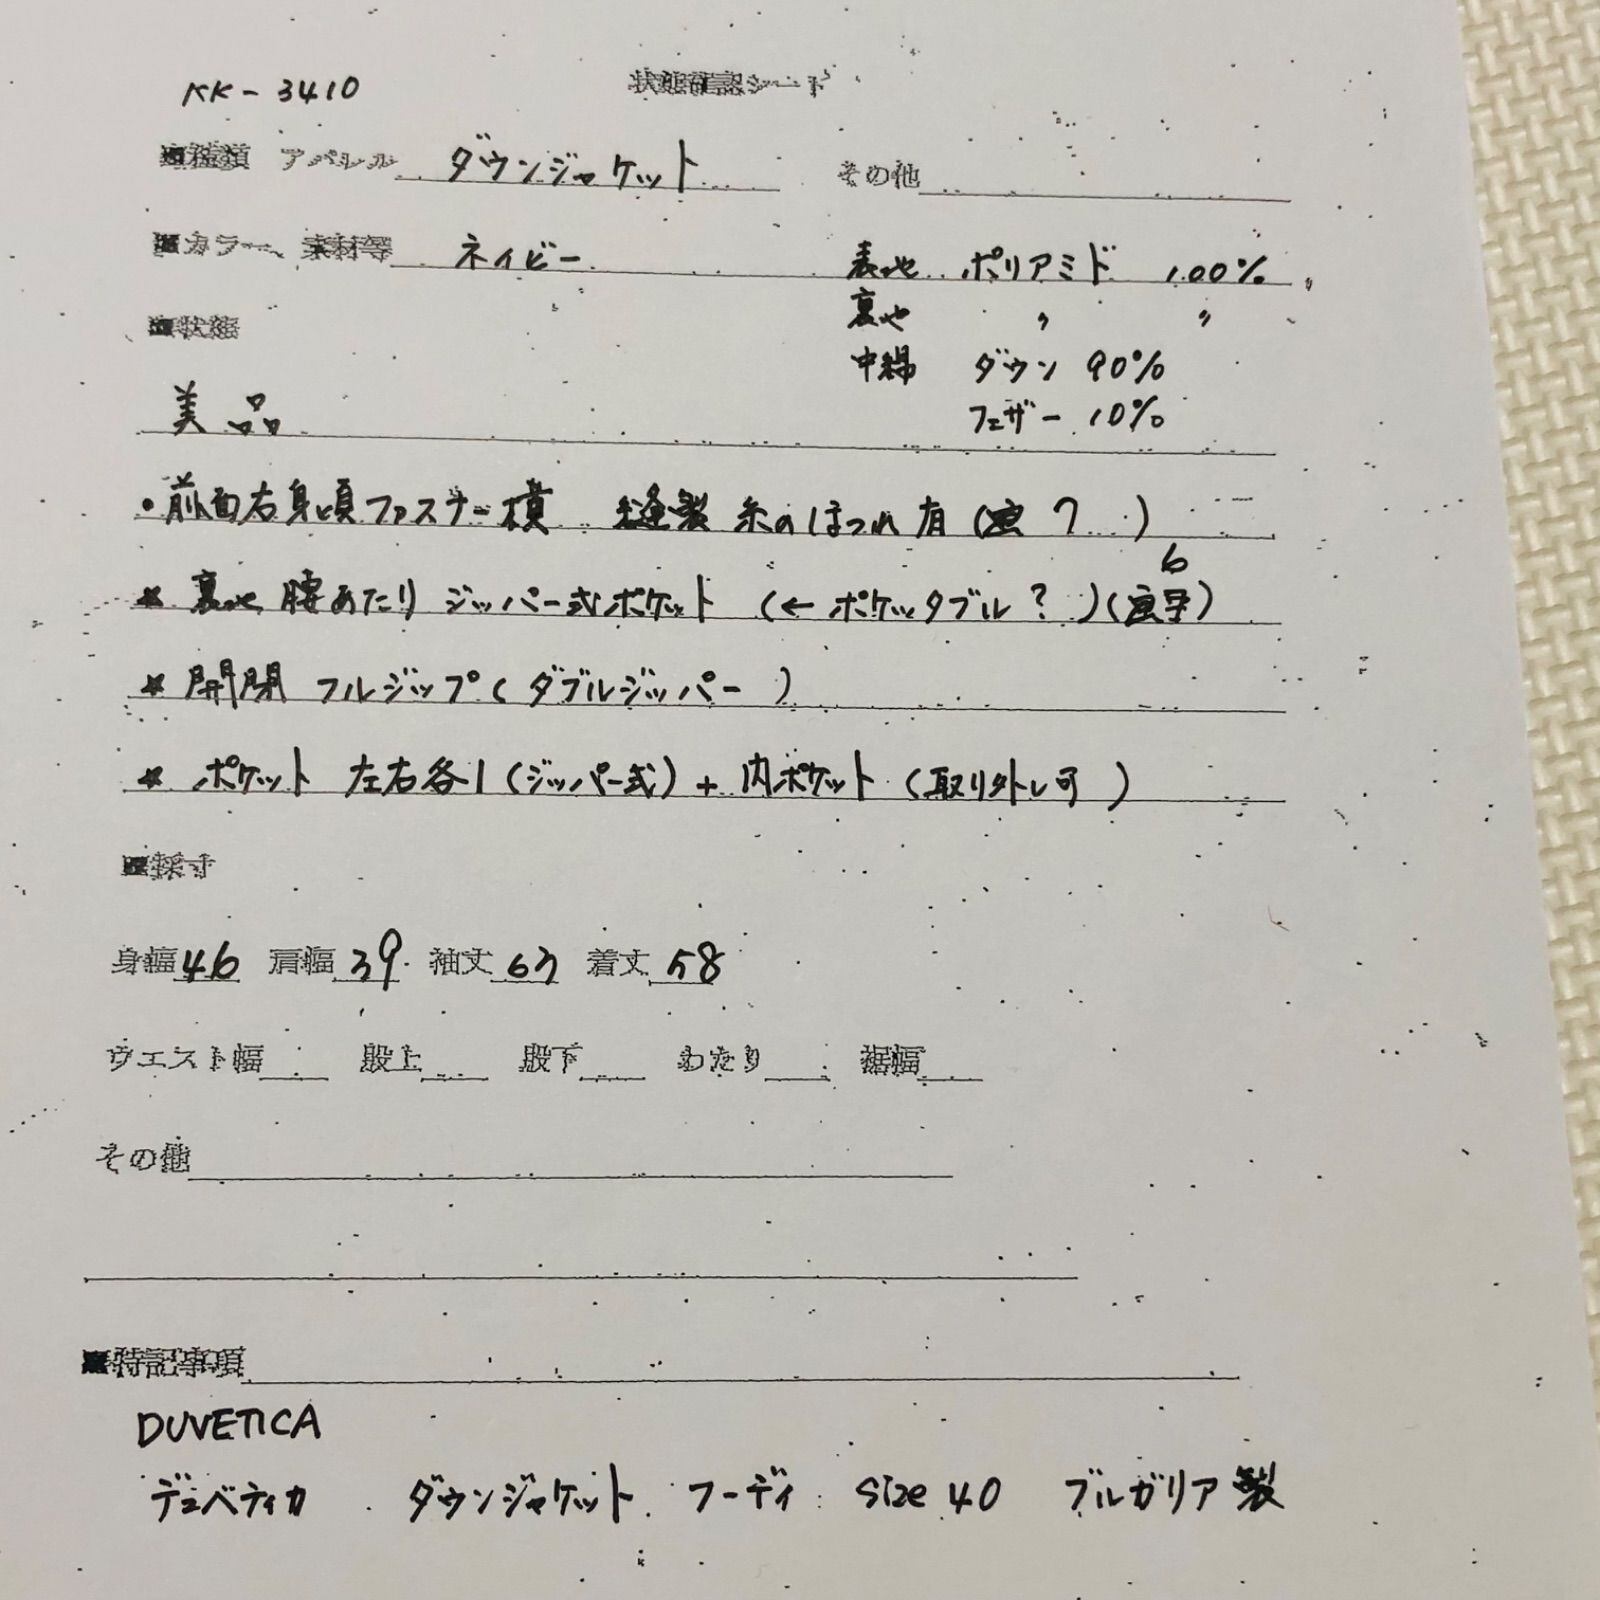 KK-3410 状態確認シート
■種類 アパレル ダウンジャケット その他
■カラー、素材等 ネイビー 表地 ポリアミド 100%
裏地 〃 〃
■状態
中綿 ダウン 90%
フェザー 10%
美品
・前面右身頃ファスナー横 縫製 糸のほつれ有(画7...)
★裏地 腰あたり ジッパー式ポケット (←ポケッタブル?)(画6)
★開閉 フルジップ(ダブルジッパー)
★ポケット 左右各1(ジッパー式)+内ポケット(取り外し可)
■採寸
身幅46 肩幅39 袖丈63 着丈58
ウエスト幅 股上 股下 わたり 裾幅
その他
■特記事項
DUVETICA
デュベティカ ダウンジャケット フーディ size 40 ブルガリア製